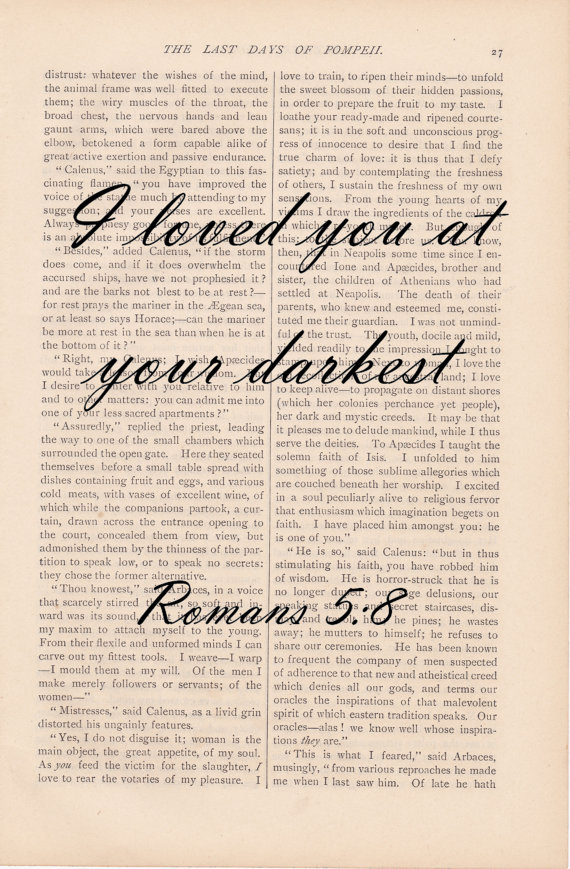 THE LAST DAYS OF POMPEII.
27
distrust: whatever the wishes of the mind,
the animal frame was well fitted to execute
them; the wiry muscles of the throat, the
broad chest, the nervous hands and lean
gaunt arms, which were bared above the
elbow, betokened a form capable alike of
great active exertion and passive endurance.
“Calenus,” said the Egyptian to this fas-
cinating flamen, “you have improved the
voice of the statue much by attending to my
suggestion; and your verses are excellent.
Always
is an
“Besides,” added Calenus, “if the storm
does come, and if it does overwhelm the
accursed ships, have we not prophesied it?
and are the barks not blest to be at rest?—
for rest prays the mariner in the Ægean sea,
or at least so says Horace;—can the mariner
be more at rest in the sea than when he is at
the bottom of it?”
“Right, my Calenus; I wish Apæcides
would take
I desire to confer with you relative to him
and to other matters: you can admit me into
one of your less sacred apartments?”
“Assuredly,” replied the priest, leading
the way to one of the small chambers which
surrounded the open gate. Here they seated
themselves before a small table spread with
dishes containing fruit and eggs, and various
cold meats, with vases of excellent wine, of
which while the companions partook, a cur-
tain, drawn across the entrance opening to
the court, concealed them from view, but
admonished them by the thinness of the par-
tition to speak low, or to speak no secrets:
they chose the former alternative.
“Thou knowest,” said Arbaces, in a voice
that scarcely stirred the air, so soft and in-
ward was its sound, “that
my maxim to attach myself to the young.
From their flexile and unformed minds I can
carve out my fittest tools. I weave—I warp
—I mould them at my will. Of the men I
make merely followers or servants; of the
women—”
“Mistresses,” said Calenus, as a livid grin
distorted his ungainly features.
“Yes, I do not disguise it; woman is the
main object, the great appetite, of my soul.
As you feed the victim for the slaughter, I
love to rear the votaries of my pleasure. I
love to train, to ripen their minds—to unfold
the sweet blossom of their hidden passions,
in order to prepare the fruit to my taste. I
loathe your ready-made and ripened courte-
sans; it is in the soft and unconscious prog-
ress of innocence to desire that I find the
true charm of love: it is thus that I defy
satiety; and by contemplating the freshness
of others, I sustain the freshness of my own
sensations. From the young hearts of my
victims I draw the ingredients of the caldron
in which
this
then, in Neapolis some time since I en-
countered Ione and Apæcides, brother and
sister, the children of Athenians who had
settled at Neapolis. The death of their
parents, who knew and esteemed me, consti-
tuted me their guardian. I was not unmind-
ful of the trust. The youth, docile and mild,
yielded readily to the impression I sought to
stamp upon him. Next to woman, I love the
land; I love
to keep alive—to propagate on distant shores
(which her colonies perchance yet people),
her dark and mystic creeds. It may be that
it pleases me to delude mankind, while I thus
serve the deities. To Apæcides I taught the
solemn faith of Isis. I unfolded to him
something of those sublime allegories which
are couched beneath her worship. I excited
in a soul peculiarly alive to religious fervor
that enthusiasm which imagination begets on
faith. I have placed him amongst you: he
is one of you.”
“He is so,” said Calenus: “but in thus
stimulating his faith, you have robbed him
of wisdom. He is horror-struck that he is
no longer duped; our sage delusions, our
speaking statues and secret staircases, dis-
and he pines; he wastes
away; he mutters to himself; he refuses to
share our ceremonies. He has been known
to frequent the company of men suspected
of adherence to that new and atheistical creed
which denies all our gods, and terms our
oracles the inspirations of that malevolent
spirit of which eastern tradition speaks. Our
oracles—alas! we know well whose inspira-
tions they are.”
“This is what I feared,” said Arbaces,
musingly, “from various reproaches he made
me when I last saw him. Of late he hath
I loved you at
your darkest
Romans 5:8